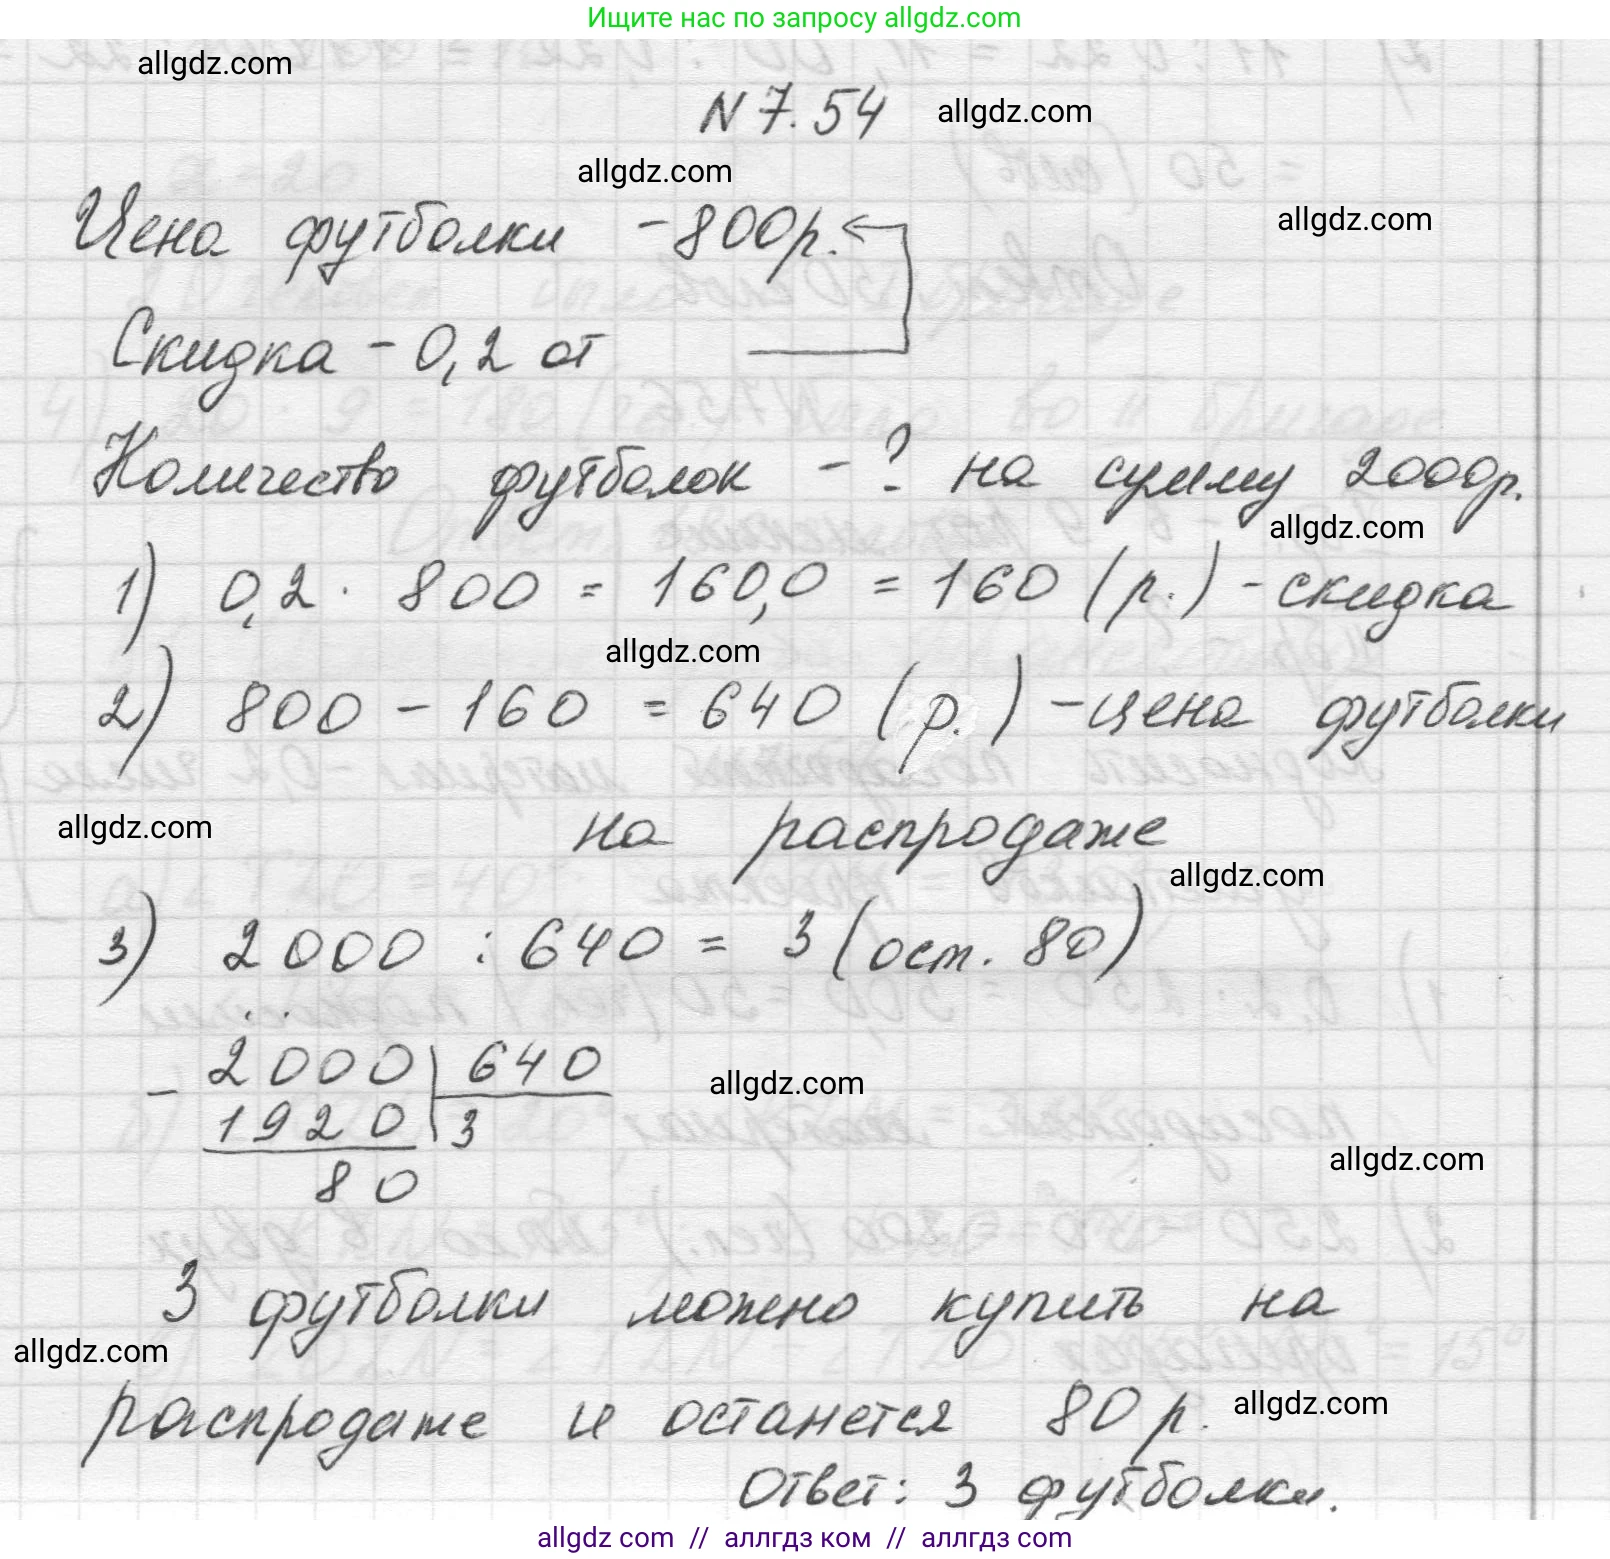 Ищите нас по запросу allgdz.com
allgdz.com
N 7.54 allgdz.com
allgdz.com
Цена футболки - 800р.
allgdz.com
Скидка - 0,2 от
Количество футболок - ? на сумму 2000р.
allgdz.com
1) 0,2 · 800 = 160,0 = 160 (р.) - скидка
allgdz.com
2) 800 - 160 = 640 (р.) - цена футболки
на распродаже
allgdz.com
allgdz.com
3) 2000 : 640 = 3 (ост. 80)
- 2000 | 640
1920 | 3
80
allgdz.com
allgdz.com
3 футболки можно купить на
allgdz.com
распродаже и останется 80 р. allgdz.com
Ответ: 3 футболки.
allgdz.com // аллгдз ком // аллгдз.com